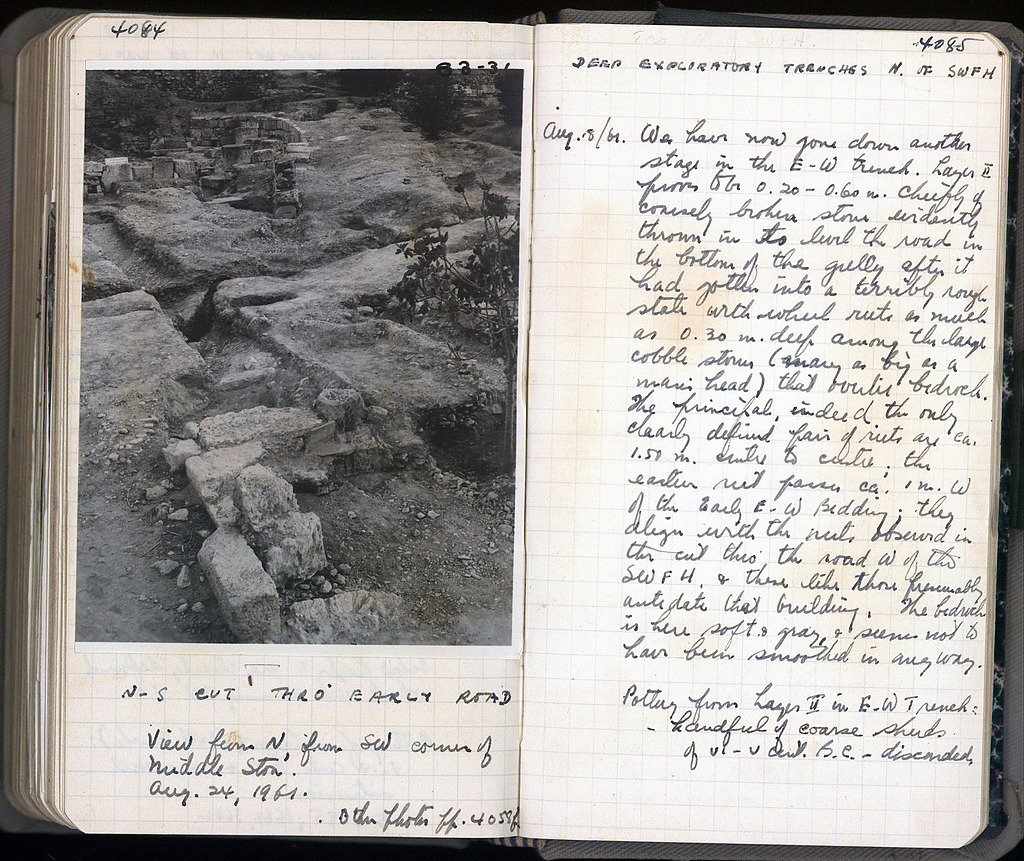 4084
83-31
N-S CUT THRO' EARLY ROAD
View from N, from SW corner of
Middle Stoa.
Aug. 24, 1961.
Other photos pp. 4058f
4085
DEEP EXPLORATORY TRENCHES N. OF SWFH
Aug. 8/61. We have now gone down another
stage in the E-W trench. Layer II
proves to be 0.20-0.60 m. chiefly of
coarsely broken stone evidently
thrown in to level the road in
the bottom of the gully after it
had gotten into a terribly rough
state with wheel ruts as much
as 0.30 m. deep among the large
cobble stones (many as big as a
man's head) that overlie bedrock.
The principal, indeed the only
clearly defined pair of ruts are ca.
1.50 m. centre to centre; the
easter rut passes ca. 1 m. W
of the Early E-W Bedding; they
align with the ruts observed in
the cut thro the road W of the
SWFH, & these like those presumably
antedate that building. The bedrock
is here soft & gray, & seems not to
have been smoothed in any way.
Pottery from Layer II in E-W Trench:
- handful of coarse sherds
of VI-V cent. B.C. - discarded.